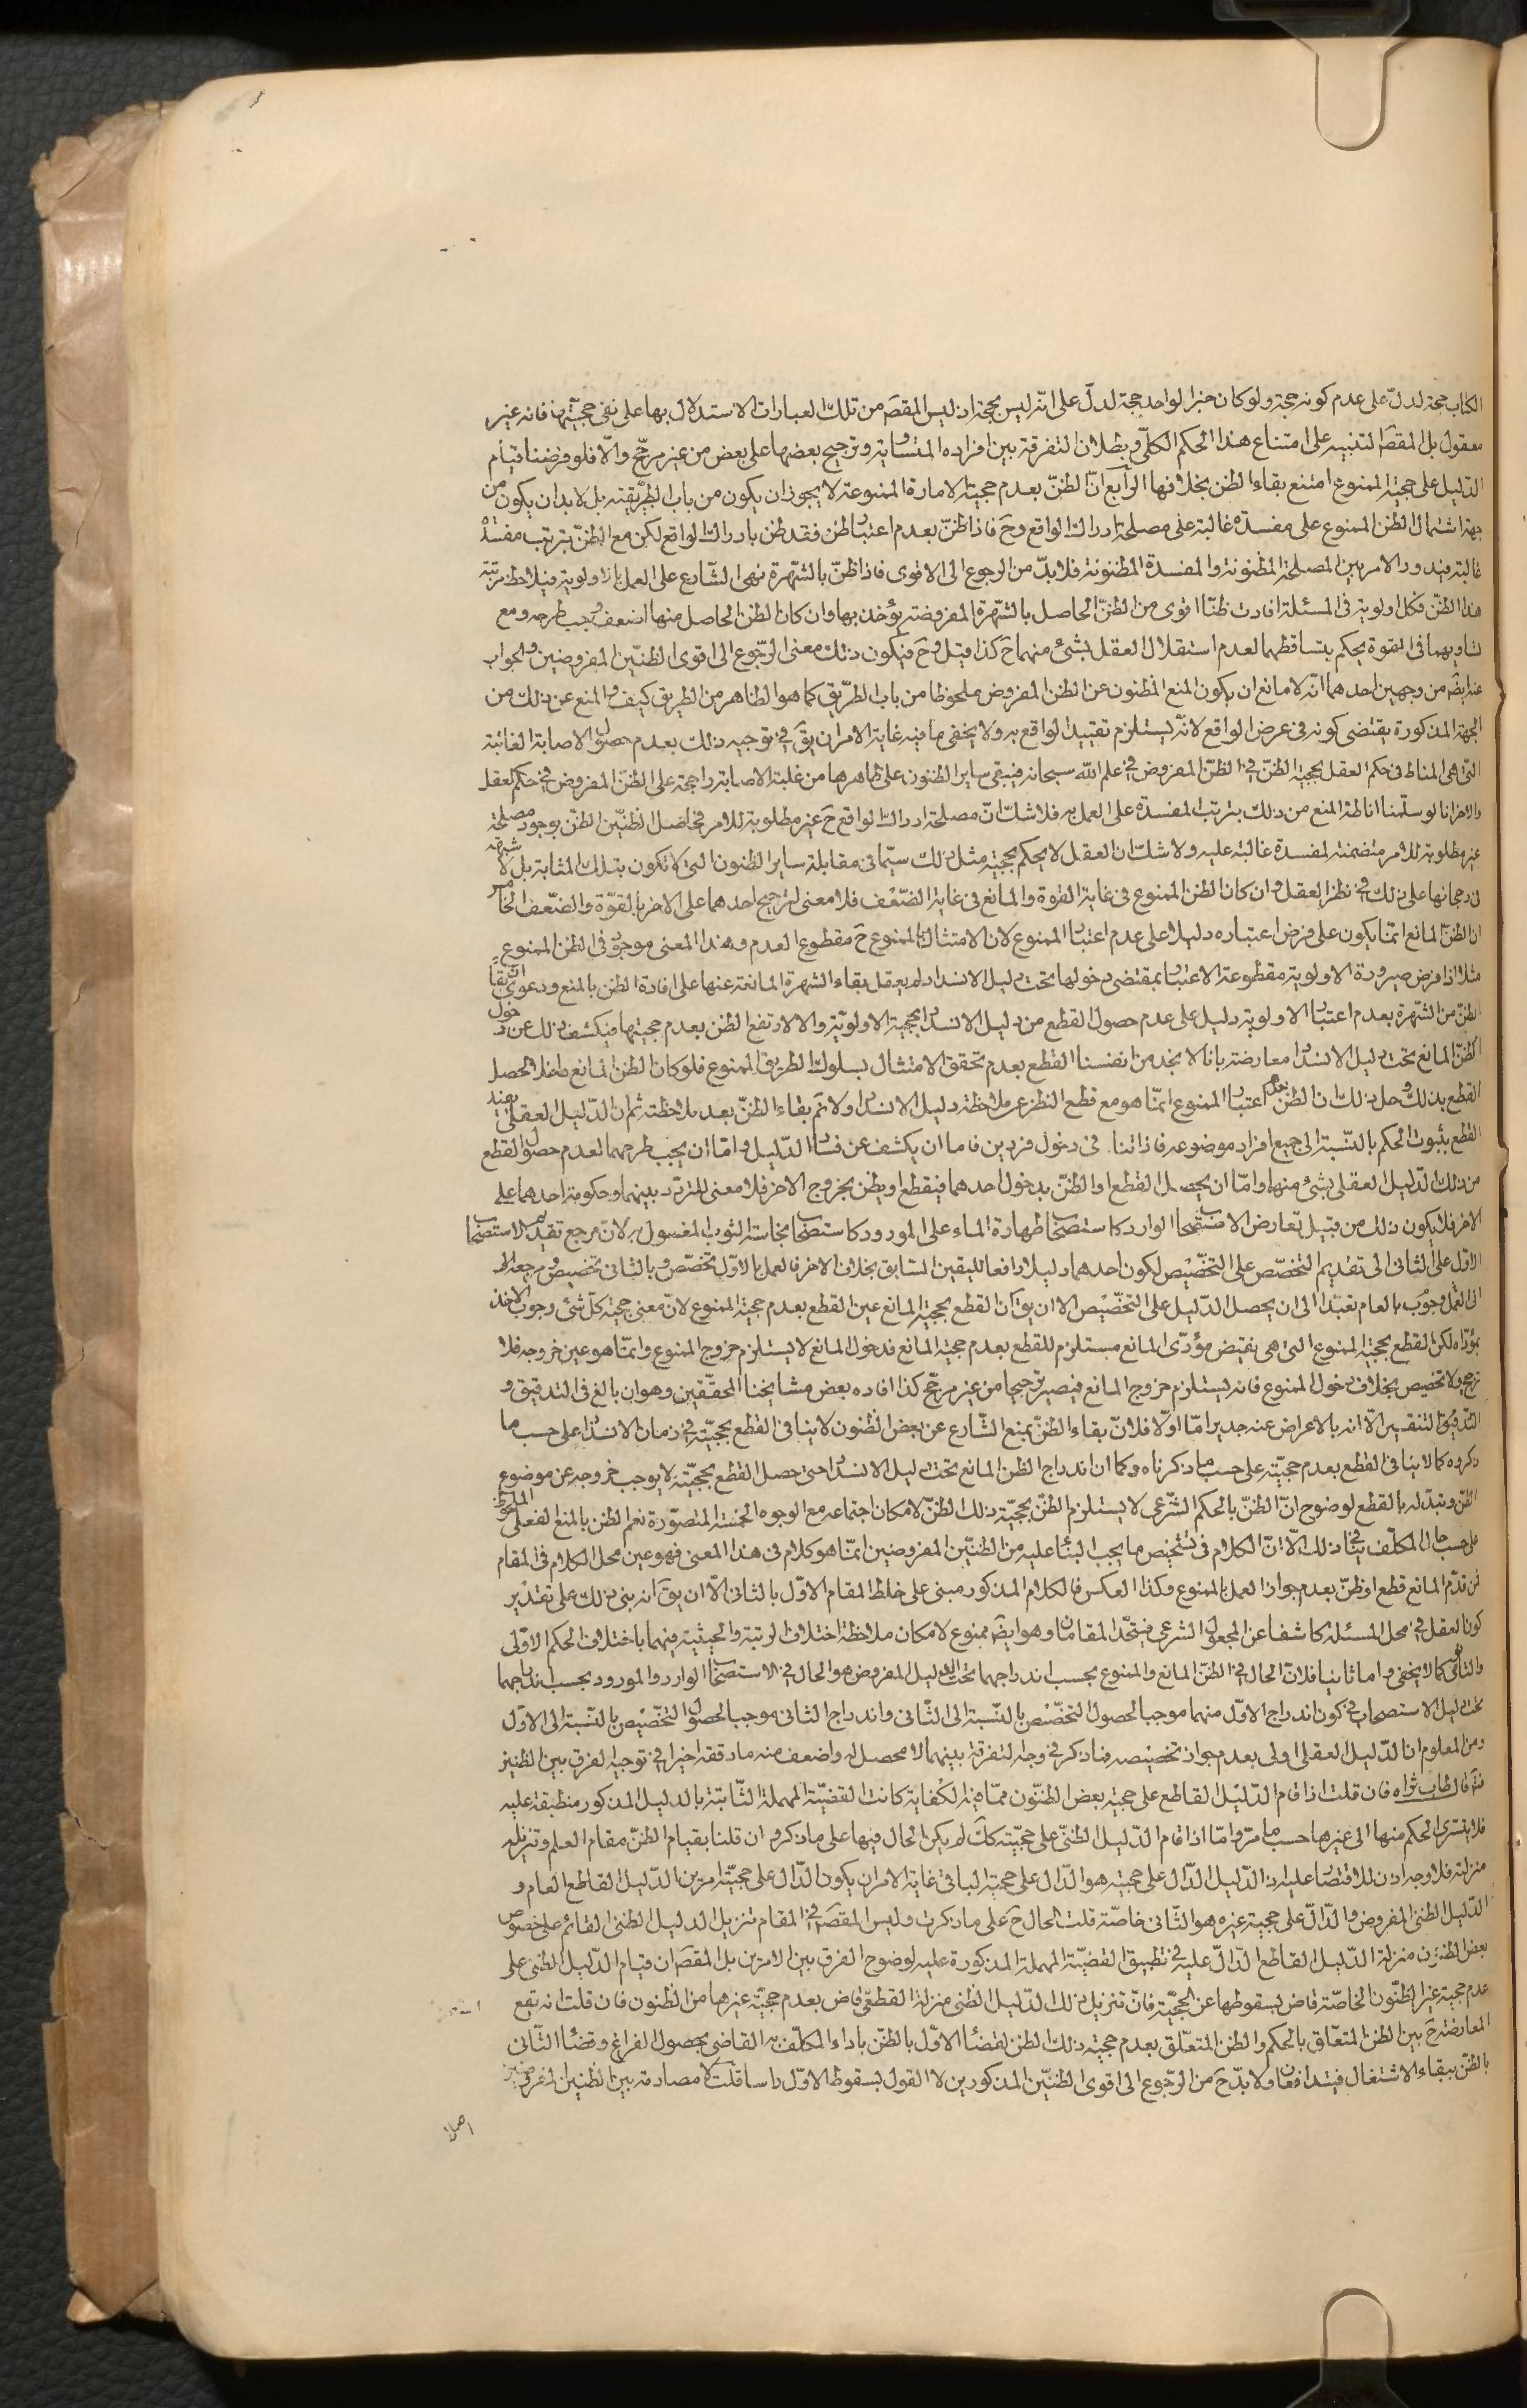 الكتاب حجة لدلّ على عدم كونه حجة ولو كان خبر الواحد حجة لدلّ على انّه ليس بحجة اذ ليس المقصَ من تلك العبارات الاستدلال بها على نفى حجيّتها فانه غير
معقول بل المقصَ التنبيه على امتناع هذا الحكم الكلّى وبطلان التفرقة بين افراده المتساية وترجيح بعضها على بعض من غير مرجّح والّا فلو فرضنا قيام
الدّليل على حجيّة الممنوع امتنع بقاء الظن بخلافها الرّابع انّ الظنّ بعدم حجيّة الامارة الممنوعة لا يجوز ان يكون من باب الطريقة بل لا بد ان يكون من
جهة اشتمال الظن الممنوع على مفسدة غالبة على مصلحة ادراك الواقع وحَ فاذا ظنّ بعدم اعتبار ظن فقد ظن بادراك الواقع لكن مع الظنّ بترتب مفسدة
غالبة فيدور الامر بين المصلحة المظنونة والمفسدة المظنونة فلا بدّ من الرجوع الى الاقوى فاذا ظنّ بالشهرة نهى الشّارع على العمل بالاولوية فيلاحظ مرتبة
هذا الظنّ فكل اولوية فى المسئلة افادت ظنّا اقوى من الظنّ الحاصل بالشّهرة المفروضة يؤخذ بها وان كان الظن الحاصل منها اضعف وجب طرحه ومع
تساويهما فى القوة يحكم بتساقطهما لعدم استقلال العقل بشئ منهما حَ كذا قيل وحَ فيكون ذلك معنى الرّجوع الى اقوى الظنّين المفروضين والجواب
عنه ايضَ من وجهين احدهما انّه لا مانع ان يكون المنع المظنون عن الظن المفروض ملحوظا من باب الطّريق كما هو الظاهر من الطريق كيف والمنع عن ذلك من
الجهة المذكورة يقتضى كونه فى عرض الواقع لانّه يستلزم تقييد الواقع به ولا يخفى ما فيه غاية الامر ان يقَ فى توجيه ذلك بعدم حصول الاصابة الغالبة
التى هى المناط فى حكم العقل بحجية الظنّ فى الظنّ المفروض فى علم اللّه سبحانه فيبقى ساير الظنون على ظاهرها من غلبة الاصابة راجحة على الظنّ المفروض فى حكم العقل
والاخر انا لو سلّمنا اناطة المنع من ذلك بترتب المفسدة على العمل به فلا شكّ انّ مصلحة ادراك الواقع حَ غير مطلوبة للامر فحاصل الظنّين الظنّ بوجود مصلحة
غير مطلوبة للامر متضمنة لمفسدة غالبة عليه ولا شكّ ان العقل لا يحكم بحجية مثل ذلك سيّما فى مقابلة ساير الظنون التى لا تكون بتلك المثابة بل لا شبهة
فى رجحانها على ذلك فى نظر العقل وان كان الظن الممنوع فى غاية القوة والمانع فى غاية الضّعف فلا معنى لترجيح احدهما على الاخر بالقوّة والضّعف الخامس
ان الظنّ المانع انمّا يكون على فرض اعتباره دليلا على عدم اعتبار الممنوع لان الامتثال بالممنوع حَ مقطوع العدم وهذا المعنى موجود فى الظن الممنوع
مثلا اذا فرض صيرورة الاولوية مقطوعة الاعتبار بمقتضى دخولها تحت دليل الانسداد لم يعقل بقاء الشهرة المانعة عنها على افادة الظن بالمنع ودعوى انّ بقاء
الظنّ من الشّهرة بعدم اعتبار الاولوية دليل على عدم حصول القطع من دليل الانسداد بحجية الاولويّة والا لارتفع الظن بعدم حجيتها فيكشف ذلك عن دخول
الظنّ المانع تحت دليل الانسداد معارضة بانا لا نجد من انفسنا القطع بعدم تحقق الامتثال بسلوك الطريق الممنوع فلو كان الظن المانع داخلا لحصل
القطع بذلك وحل ذلك ان الظن بعدم اعتبار الممنوع انمّا هو مع قطع النظر عن ملاحظة دليل الانسداد ولا نَم بقاء الظنّ بعد ملاحظته ثم ان الدّليل العقلى يفيد
القطع بثبوت الحكم بالنّسبة الى جميع افراد موضوعه فاذا تنافى دخول فردين فاما ان يكشف عن فساد الدّليل وامّا ان يجب طرحهما لعدم حصول القطع
من ذلك الدّليل العقلى بشئ منهما وامّا ان يحصل القطع او الظنّ بدخول احدهما فيقطع او يظن بخروج الاخر فلا معنى للتردّد بينهما وحكومة احدهما على
الاخر فلا يكون ذلك من قبيل تعارض الاستصحاب الوارد كاستصحاب طهارة الماء على المورود كاستصحاب نجاسة الثوب المغسول به لانّ مرجع تقديم الاستصحاب
الاوّل على الثانى الى تقديم التخصّص على التخصّيص لكون احدهما دليلا رافعا لليقين السّابق بخلاف الاخر فالعمل بالاوّل تخصّص وبالثانى تخصيص ومرجعه
الى العمل وجوب بالعام تعبّدا الى ان يحصل الدّليل على التخصّيص الا ان يقَ ان القطع بحجية المانع عين القطع بعدم حجيّة الممنوع لانّ معنى حجية كلّ شئ وجوب الاخذ
بمؤدّاه لكن القطع بحجيّة الممنوع التى هى نقيض مؤدّى المانع مستلزم للقطع بعدم حجيّة المانع فدخول المانع لا يستلزم خروج الممنوع وانمّا هو عين خروجه فلا
ترجيح ولا تخصيص بخلاف دخول الممنوع فانه يستلزم خروج المانع فيصير ترجيحا من غير مرجّح كذا افاده بعض مشايخنا المحقّقين وهو ان بالغ فى التدقيق و
التدقيق التنقير الّا انه بالاعراض عنه جدير امّا اوّلا فلانّ بقاء الظنّ بمنع الشّارع عن بعض الظنون لا ينافى القطع بحجيّته فى زمان الانسداد على حسب ما
ذكروه كما لا ينافى القطع بعدم حجيّته على حسب ما ذكرناه وكما ان اندراج الظن المانع تحت دليل الانسداد حتى حصل القطع بحجيّته لا يوجب خروجه عن موضوع
الظن وتبدّله بالقطع لوضوح انّ الظنّ بالحكم الشّرعى لا يستلزم الظنّ بحجيّة ذلك الظنّ لامكان اجتماعه مع الوجوه الخمسة المتصوّرة نعم الظن بالمنع الفعلى الملحوظ
على حسب حال المكلّف ينافى ذلك الّا انّ الكلام فى تشخيص ما يجب البناء عليه من الظنّين المفروضين انمّا هو كلام فى هذا المعنى فهو عين محل الكلام فى المقام
فمن قدّم المانع قطع او ظنّ بعدم جواز العمل بالممنوع وكذا العكس فالكلام المذكور مبنى على خلط المقام الاوّل بالثانى الّا ان يقَ انه بنى ذلك على تقدير
كون العقل فى محل المسئلة كاشفا عن المجعول الشرعى فيتحّد المقامان وهو ايضَ ممنوع لامكان ملاحظة اختلاف الرتبة والحيثية فيهما باختلاف الحكم الاوّلى
والثانوى كما لا يخفى واما ثانيا فلانّ الحال فى الظنّ المانع والممنوع بحسب اندراجهما تحت الدليل المفروض هو الحال فى الاستصحاب الوارد والمورود بحسب اندراجهما
تحت دليل الاستصحاب فى كون اندراج الاوّل منهما موجبا لحصول التخصّص بالنّسبة الى الثّانى واندراج الثانى موجبا لحصول التخصّيص بالنّسبة الى الاوّل
ومن المعلوم ان الدّليل العقلى اولى بعدم جواز تخصيصه فما ذكر فى وجه التفرقة بينهما لا محصل له واضعف منه ما دققه اخيرا فى توجيه الفرق بين الظنين
ثمّ قال طاب ثراه فان قلت اذا قام الدّليل القاطع على حجية بعض الظنّون ممّا فيه الكفاية كانت القضيّة المهملة الثّابتة بالدليل المذكور منطبقة عليه
فلا يتسرى الحكم منها الى غيرها حسب ما مرّ وامّا اذا قام الدّليل الظنّى على حجيّته ككَ لم يكن الحال فيها على ما ذكر وان قلنا بقيام الظنّ مقام العلم وتنزيله
منزلته فلا وجه اذن للاقتصار عليه اذ الدّليل الدّال على حجيته هو الدّال على حجيّة الباقى غاية الامر ان يكون الدّال على حجيّته امرين الدّليل القاطع العام و
الدّليل الظنىّ المفروض والدّالّ على حجية غيره هو الثّانى خاصّة قلت الحال حَ على ما ذكرت وليس المقصَ فى المقام تنزيل الدليل الظنىّ القائم على خصوص
بعض الظنون منزلة الدّليل القاطع الدّالّ عليه فى تطبيق القضيّة المهملة المذكورة عليه لوضوح الفرق بين الامرين بل المقصَ ان قيام الدّليل الظنى على
عدم حجية غير الظنّون الخاصّة قاض بسقوطها عن الحجيّة فانّ تنزيل ذلك الدّليل الظنى منزلة القطعىّ قاض بعدم حجيّة غيرها من الظنون فان قلت انه تقع
المعارضة حَ بين الظن المتعلّق بالحكم والظن المتعلّق بعدم حجية ذلك الظن لقضاء الاوّل بالظنّ باداء المكلّف به القاضى بحصول الفراغ وقضاء الثّانى
بالظنّ ببقاء الاشتغال فيتدافعان ولا بدّ حَ من الرّجوع الى اقوى الظنّين المذكورين لا القول بسقوط الاوّل راسا قلت لا مصادمة بين الظنين المفروضين
اصلا